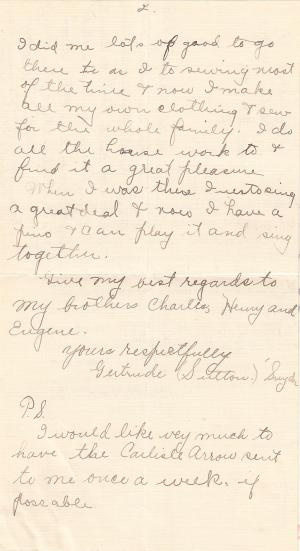 2.
I did me lots of good to go
there for I to sewing most
of the time & now I make
all my own clothing & sew
for the whole family. I do
all the house work to &
find it a great pleasure
When I was there I used to sing
a great deal & now I have a
pino & can play it and sing
together.
Give my best regards to
my brothers Charles, Henry and
Eugene.
yours respectfully
Gertrude (Sutton.) Snyder
P.S.
I would like vey much to
have the Carlisle Arrow sent
to me once a week. if
poss able